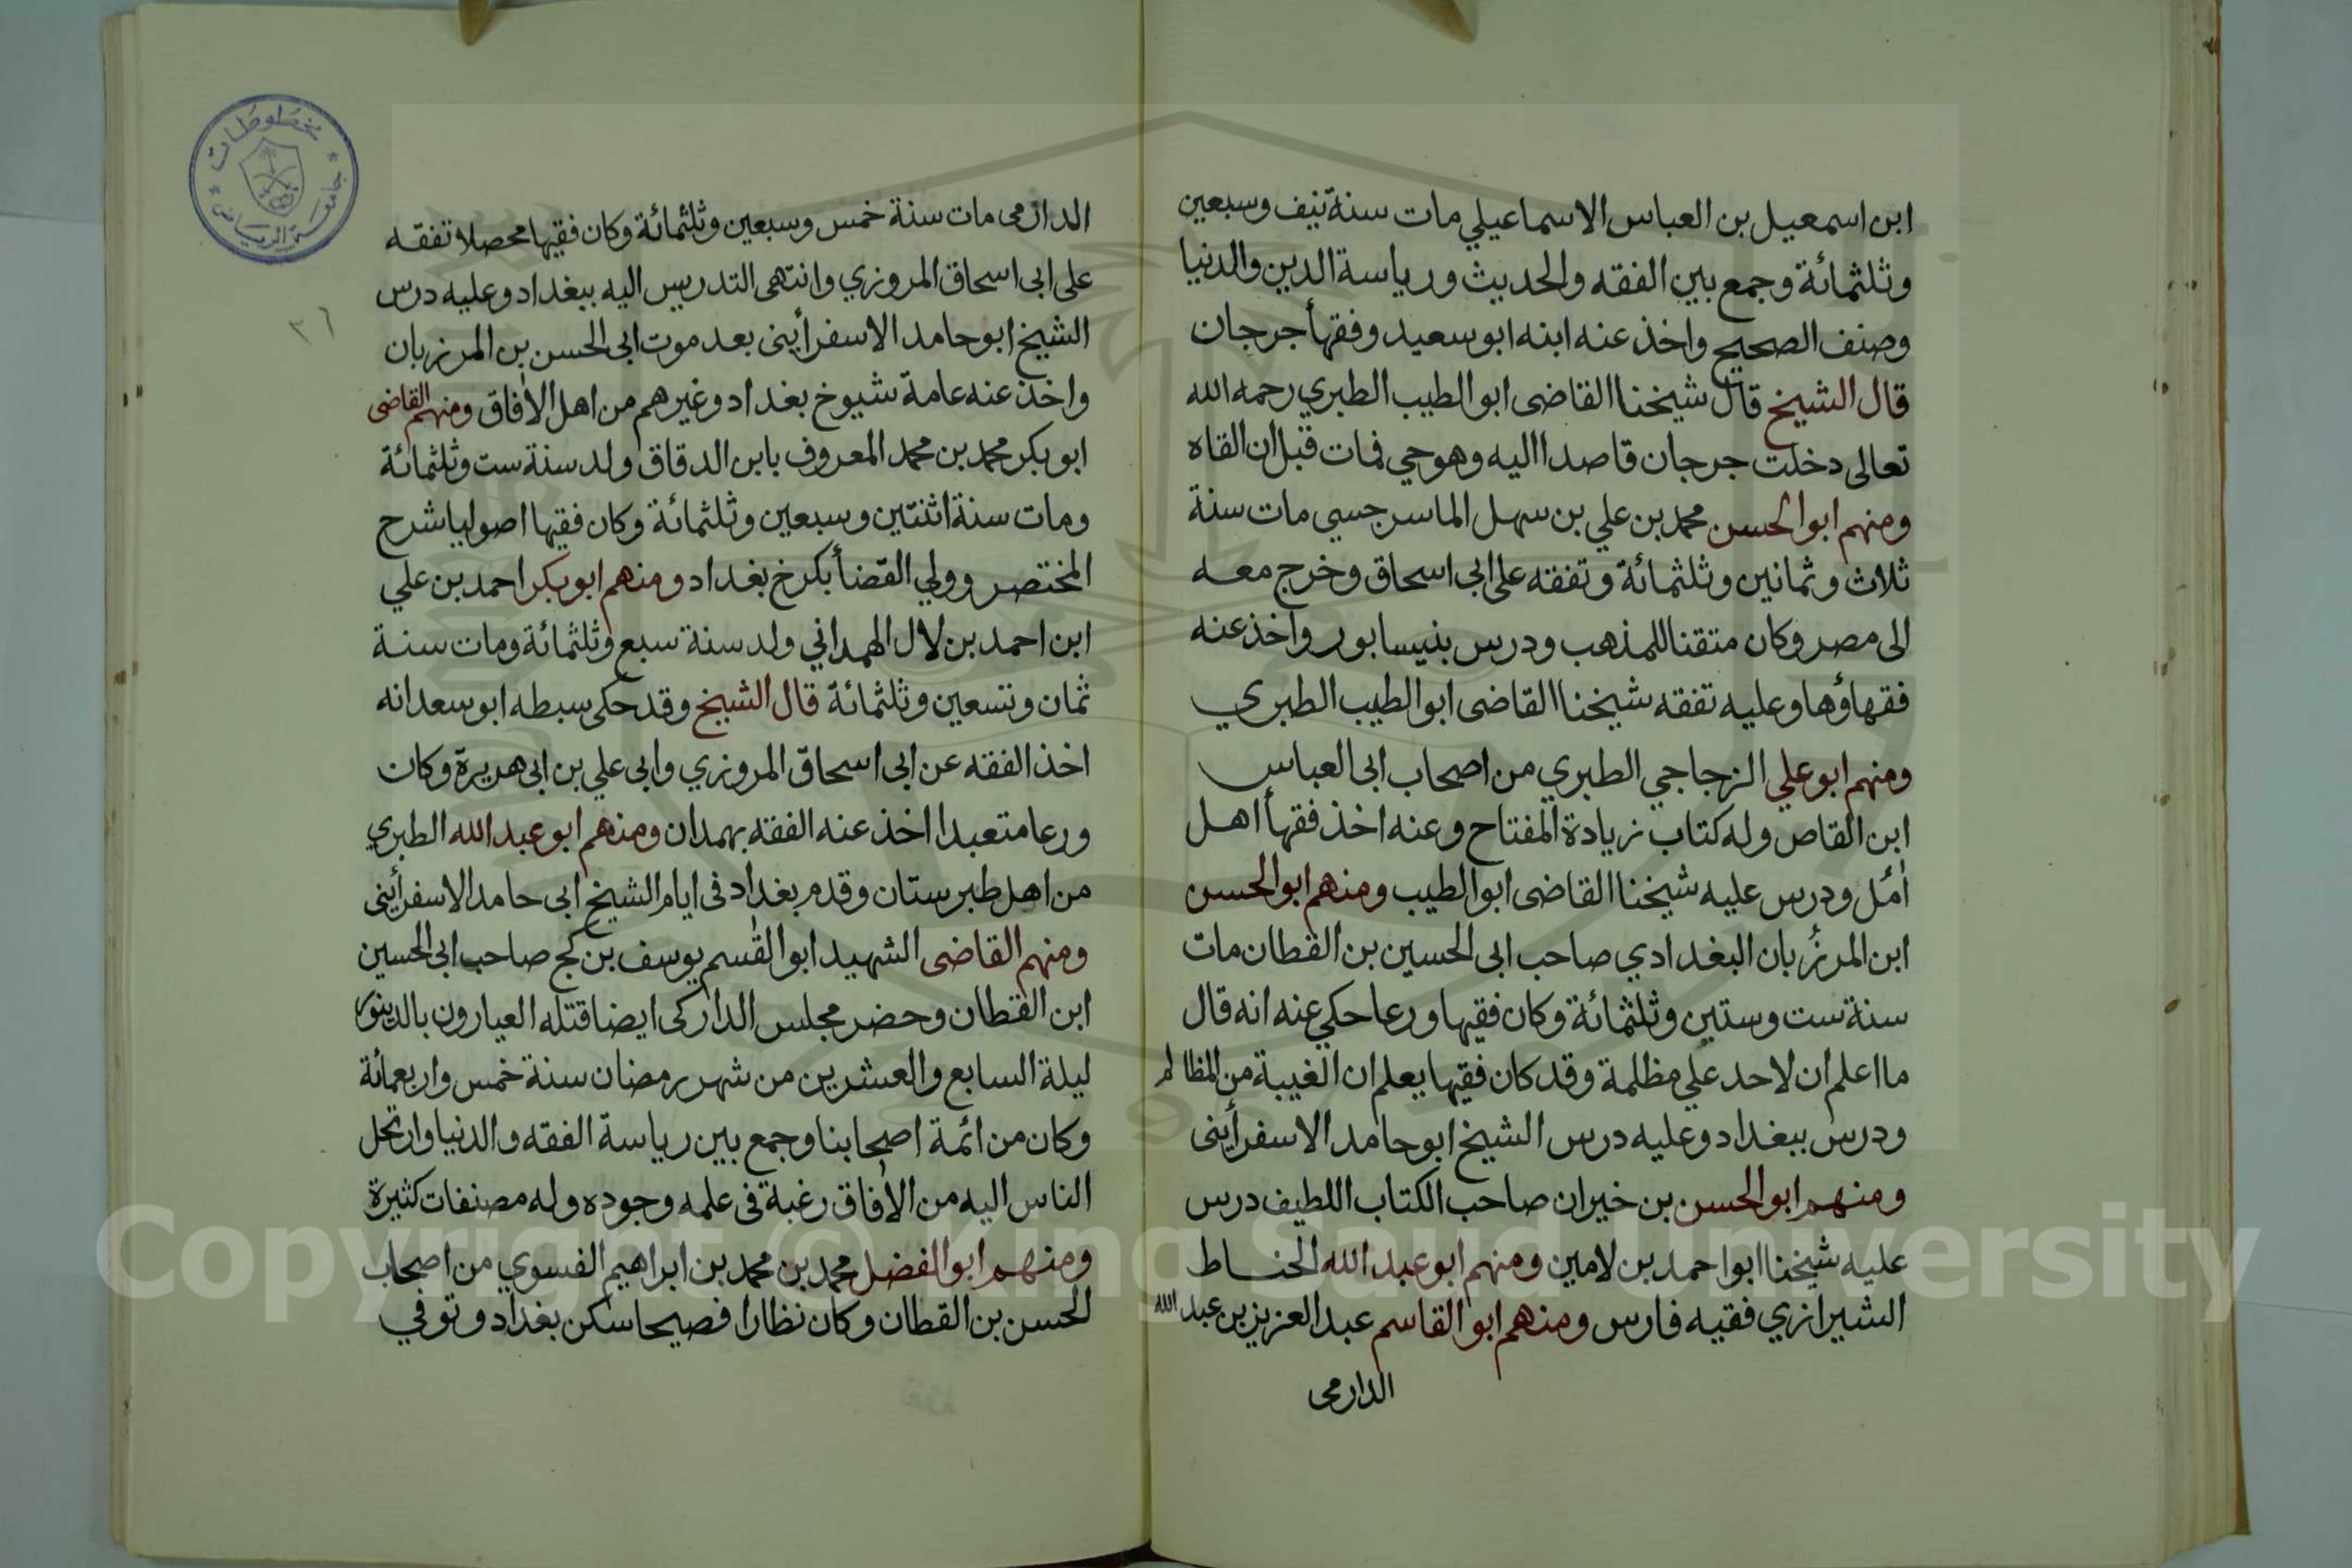 ابن اسمعيل بن العباس الاسماعيلي مات سنة نيف وسبعين
وثلثمائة وجمع بين الفقه والحديث ورياسة الدين والدنيا
وصنف الصحيح واخذ عنه ابنه ابو سعيد وفقهأ جرجان
قال الشيخ قال شيخنا القاضى ابو الطيب الطبري رحمه الله
تعالى دخلت جرجان قاصدا اليه وهو حي فمات قبل ان القاه
ومنهم ابو الحسن محمد بن علي بن سهل الماسرجسي مات سنة
ثلاث وثمانين وثلثمائة وتفقه على ابى اسحاق وخرج معه
الى مصر وكان متقنا للمذهب ودرس بنيسابور واخذ عنه
فقهاؤها وعليه تفقه شيخنا القاضى ابو الطيب الطبري
ومنهم ابو علي الزجاجي الطبري من اصحاب ابى العباس
ابن القاص وله كتاب زيادة المفتاح وعنه اخذ فقهأ اهل
آمل ودرس عليه شيخنا القاضى ابو الطيب ومنهم ابو الحسن
ابن المرزبان البغدادي صاحب ابى الحسين بن القطان مات
سنة ست وستين وثلثمائة وكان فقيها ورعا حكي عنه انه قال
ما اعلم ان لاحد علي مظلمة وقد كان فقيها يعلم ان الغيبة من المظالم
ودرس ببغداد وعليه درس الشيخ ابو حامد الاسفرأينى
ومنهم ابو الحسن بن خيران صاحب الكتاب اللطيف درس
عليه شيخنا ابو احمد بن لامين ومنهم ابو عبد الله الحناط
الشيرازي فقيه فارس ومنهم ابو القاسم عبد العزيز بن عبد الله
الدارمى
الدارمى مات سنة خمس وسبعين وثلثمائة وكان فقيها محصلا تفقه
على ابى اسحاق المروزي وانتهى التدريس اليه ببغداد وعليه درس
الشيخ ابو حامد الاسفرأينى بعد موت ابى الحسن بن المرزبان
واخذ عنه عامة شيوخ بغداد وغيرهم من اهل الآفاق ومنهم القاضى
ابو بكر محمد بن محمد المعروف بابن الدقاق ولد سنة ست وثلثمائة
ومات سنة اثنتين وسبعين وثلثمائة وكان فقيها اصوليا شرح
المختصر وولي القضأ بكرخ بغداد ومنهم ابو بكر احمد بن علي
ابن احمد بن لال الهمداني ولد سنة سبع وثلثمائة ومات سنة
ثمان وتسعين وثلثمائة قال الشيخ وقد حكى سبطه ابو سعد انه
اخذ الفقه عن ابى اسحاق المروزي وابى علي بن ابى هريرة وكان
ورعا متعبدا اخذ عنه الفقه بهمدان ومنهم ابو عبد الله الطبري
من اهل طبرستان وقدم بغداد فى ايام الشيخ ابى حامد الاسفرأينى
ومنهم القاضى الشهيد ابو القسم يوسف بن كج صاحب ابى الحسين
ابن القطان وحضر مجلس الداركى ايضا قتله العيارون بالدينور
ليلة السابع والعشرين من شهر رمضان سنة خمس واربعمائة
وكان من ائمة اصحابنا وجمع بين رياسة الفقه والدنيا وارتحل
الناس اليه من الآفاق رغبة فى علمه وجوده وله مصنفات كثيرة
ومنهم ابو الفضل محمد بن محمد بن ابراهيم الفسوي من اصحاب
الحسن بن القطان وكان نظارا فصيحا سكن بغداد وتوفي
٢٦
مخطوطات
جامعة الرياض
Copyright © King Saud University